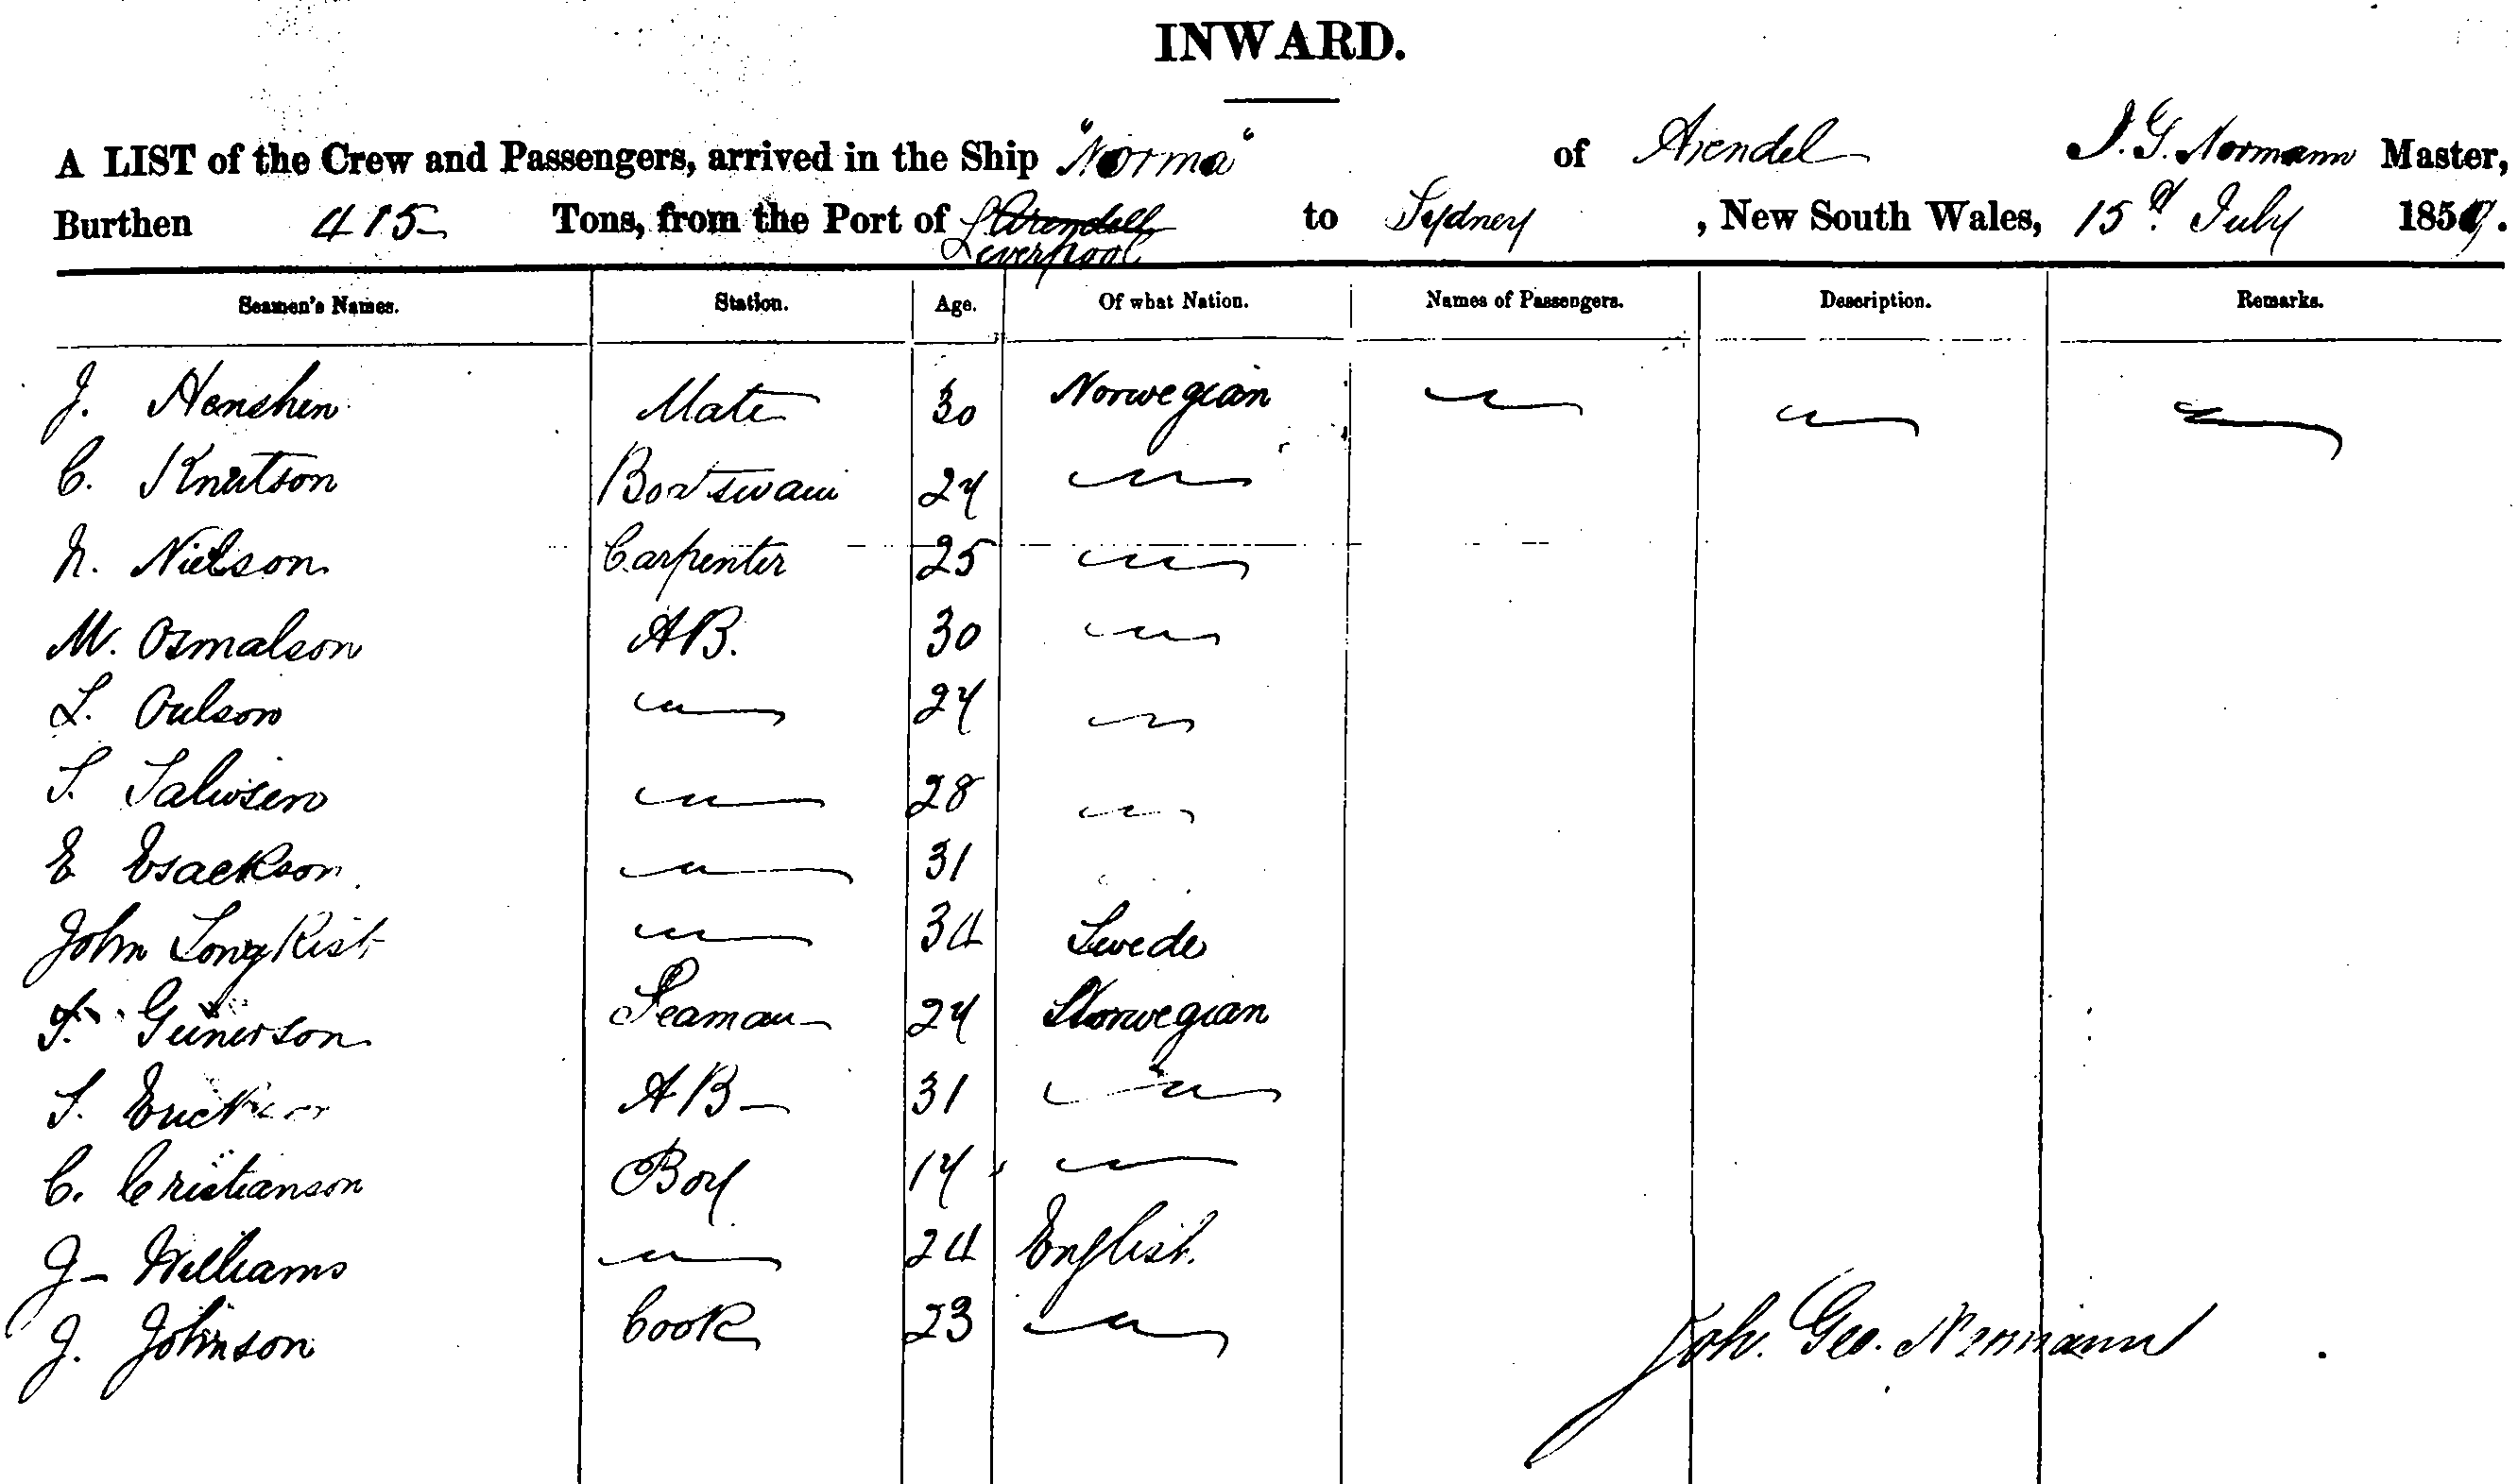 INWARD.
A LIST of the Crew and Passengers, arrived in the Ship "Norma" of Arendel J. G. Normann Master,
Burthen 415 Tons, from the Port of Liverpool to Sydney, New South Wales, 15th July 1859.
Seamen's Names. Station. Age. Of what Nation. Names of Passengers. Description. Remarks.
J. Henshen Mate 30 Norwegian 〃 〃 〃
C. Knutson Boatswain 24 〃
N. Nielson Carpenter 25 〃
M. Osmalson AB. 30 〃
L. Oulson 〃 24 〃
S. 〃 28 〃
E Esackson 〃 31
John Longkist 〃 34 Swede
Gunerson Seaman 24 Norwegian
S. Erickson AB 31 〃
C. Cristianson Boy 14 〃
J. Williams 〃 24 English.
J. Johnson Cook 23 〃
Joh. Geo. Normann